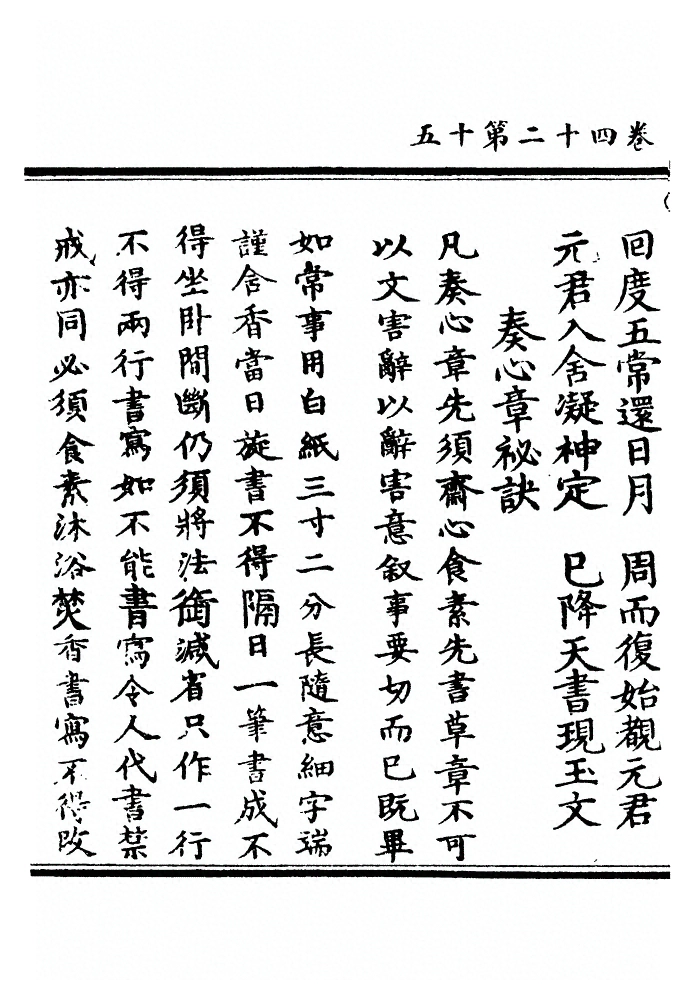 卷四十二第十五
回度五常還日月　周而復始覩元君
元君入舍凝神定　已降天書現玉文
奏心章祕訣
凡奏心章先須齋心食素先書草章不可
以文害辭以辭害意叙事要切而已既畢
如常事用白紙三寸二分長隨意細字端
謹含香當日旋書不得隔日一筆書成不
得坐卧間斷仍須將法銜減省只作一行
不得兩行書寫如不能書寫令人代書禁
戒亦同必須食素沐浴焚香書寫不得改